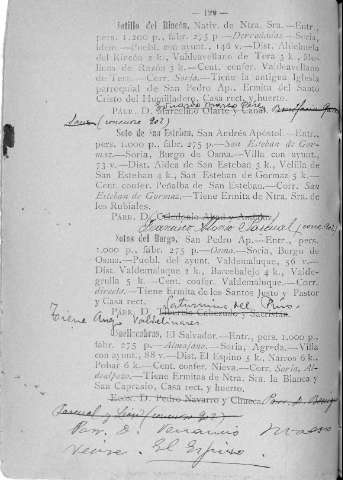 — 199 —
Sotillo del Rincón, Nativ. de Ntra. Sra.—Entr.,
pers. 1.200 p., fabr. 275 p.—Derroñadas—Soria,
idem.—Puebl. con ayunt., 146 v.—Dist. Aldehuela
del Rincón 2 k., Valdeavellano de Tera 3 k., Mo-
linos de Razón 3 k.—Cent. confer. Valdeavellano
de Tera.—Corr. Soria.—Tiene la antigua Iglesia
parroquial de San Pedro Ap., Ermita del Santo
Cristo del Humilladero, Casa rect. y huerto.
PÁRR. D. Marcelino Olarte y Canal
Sanz (concurso 902)
Soto de San Esteban, San Andrés Apóstol.—Entr.,
pers. 1.000 p., fabr. 275 p.—San Esteban de Gor-
maz.—Soria, Burgo de Osma.—Villa con ayunt.,
73 v.—Dist. Aldea de San Esteban 3 k., Velilla de
San Esteban 4 k., San Esteban de Gormaz 5 k.—
Cent. confer. Peñalba de San Esteban.—Corr. San
Esteban de Gormaz.—Tiene Ermita de Ntra. Sra. de
los Rubiales.
PÁRR. D. Celedonio
Pascual
Sotos del Burgo, San Pedro Ap.—Entr., pers.
1.000 p., fabr. 275 p.—Osma.—Soria, Burgo de
Osma.—Puebl. del ayunt. Valdemaluque, 36 v.—
Dist. Valdemaluque 2 k., Barcebalejo 4 k., Valde-
grulla 5 k.—Cent. confer. Valdemaluque.—Corr.
directo.—Tiene Ermita de los Santos Justo y Pastor
y Casa rect.
Saturnino del Pino
PÁRR. D. Tiburcio
Tiene Anejo Valdelinares
Suellacabras, El Salvador.—Entr., pers. 1.000 p.,
fabr. 275 p.—Almajano.—Soria, Agreda.—Villa
con ayunt., 88 v.—Dist. El Espino 5 k., Narros 6 k.,
Pobar 6 k.—Cent. confer. Nieva.—Corr. Soria, Al-
dealpozo.—Tiene Ermitas de Ntra. Sra. la Blanca y
San Caprasio, Casa rect. y huerto.
ECON. D. Pedro Navarro y Chueca
Pascual y (concurso 902)
Parr. D. Venancio
El Espino